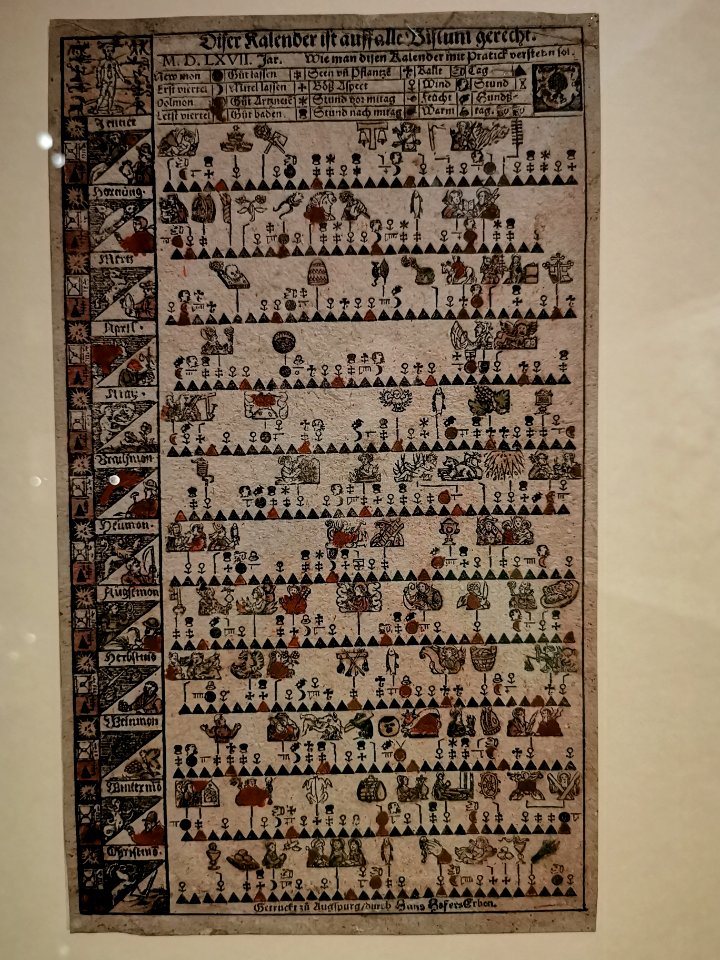 Diser Kalender ist auff alle Bistum gerecht.
M. D. LXVII. Jar. Wie man disen Kalender mit Pratick versteen sol.
New mon Gůt lassen Seen vñ Pflantzē Faste Tag
Erst viertel Mitel lassen Böß Aspect Wind Stund
Volmon Gůt Artznei Stund vor mitag Feücht Hundß-
Letst viertel Gůt baden. Stund nach mitag Warm tag.
Jenner
Hornung.
Mertz
April.
May.
Brachmon
Heümon.
Augstmon
Herbstmō
Weinmon
Wintermō
Christmō.
Getruckt zů Augspurg/durch Hans Hofers Erben.